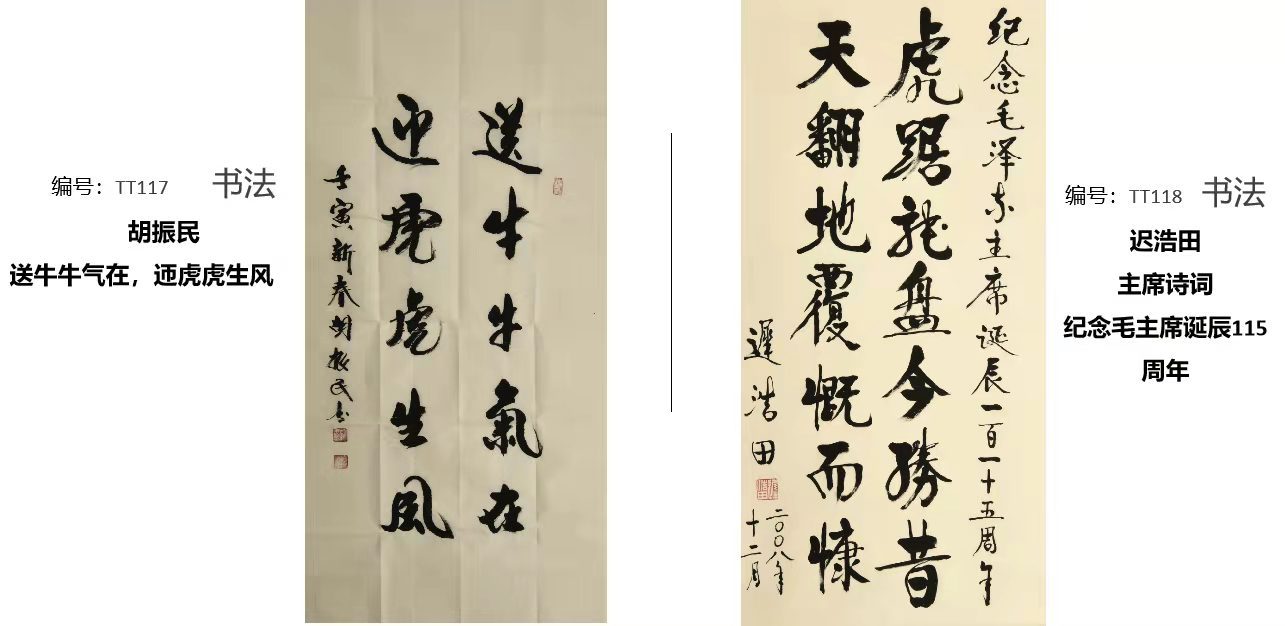 编号：TT117 书法
胡振民
送牛牛气在，迊虎虎生风
送牛牛氣在
迎虎虎生風
壬寅新春胡振民书
编号：TT118 书法
迟浩田
主席诗词
纪念毛主席诞辰115
周年
纪念毛泽东主席诞辰一百一十五周年
虎踞龙盘今勝昔
天翻地覆慨而慷
遲浩田
二〇〇八年
十二月